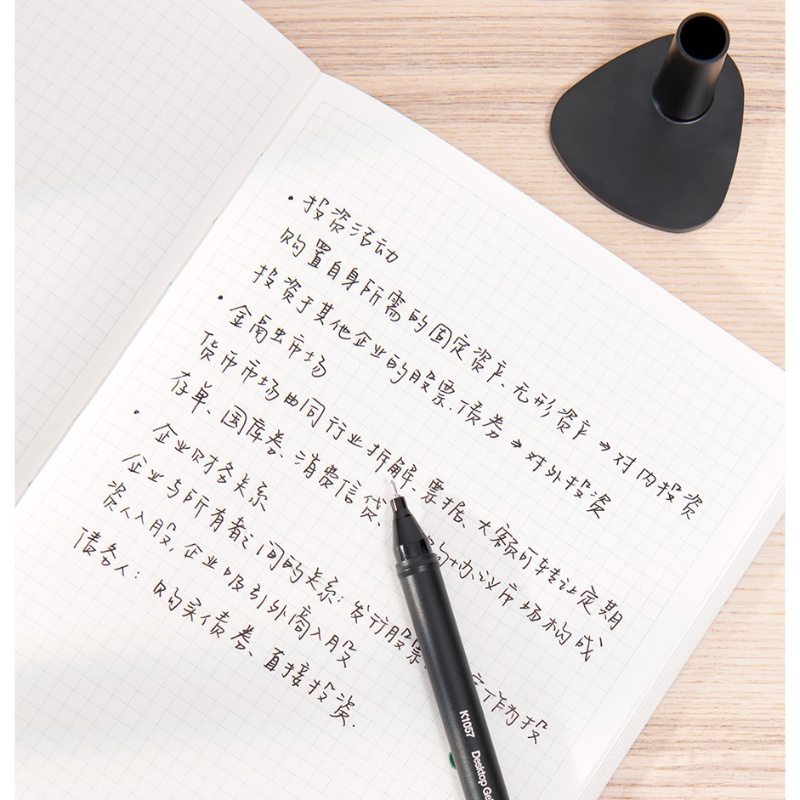 • 投资活动
购置自身所需的固定资产、无形资产→对内投资
投资于其他企业的股票、债券→对外投资
• 金融市场
货币市场由同行业拆解 票据、大额可转让定期
存单、国库券、消费信贷 购协议市场构成
• 企业财务关系
企业与所有者之间的关系：发行股票 作为投
资人入股，企业吸引外商入股
债务人：购买债券、直接投资.
K1057 Desktop Gel